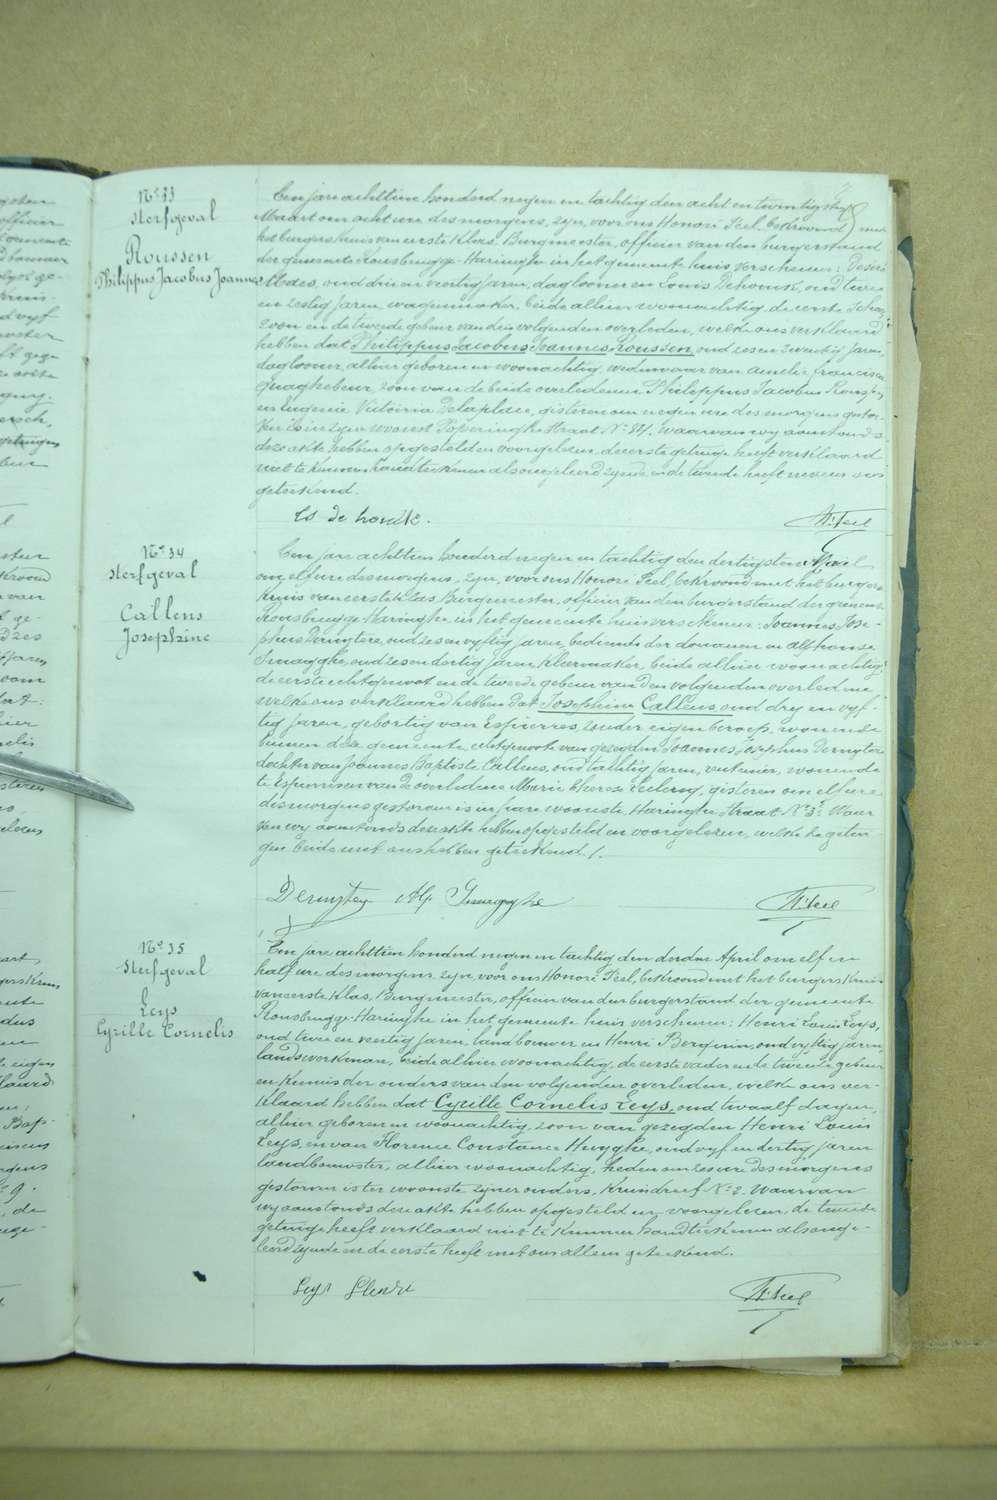 Nr 33
Sterfgeval
Roussen
Philippus Jacobus Joannes
Een jare achttien honderd negen en tachtig den acht en twintigsten
Maart om acht ure des morgens, zyn, voor ons Honoré Feel, bekroond met
het burgerskruis van eerste Klas, Burgmeester, officier van den burgerstand
der gemeente Rousbrugge-Haringhe in het gemeente huis verschenen: Desiré
oud drie en veertig jaren, daglooner en Louis Dehouck, oud twee
en zestig jaren, wagenmaker, beide alhier woonachtig, de eerste schoon
zoon en de tweede gebuur van den volgenden overleden, welke ons verklaard
hebben dat Philippus Jacobus Joannes Roussen, oud zes en zeventig jaren,
daglooner, alhier geboren en woonachtig, weduwaar van Amelie Francisca
Quaghebeur, zoon van de beide overledenen Philippus Jacobus Roussen
en Eugenie Victoria Delaplace, gisteren om negen ure des morgens gestor-
ven is in zyn woonst Poperinghe straat No 84. Waarvan wy aanstonds
deze akte hebben opgesteld en voorgelezen, de eerste getuige heeft verklaard
niet te kunnen handteekenen als ongeleerd zynde en de tweede heeft nevens ons
geteekend.
Ls de houck. H. Feel
Nr 34
Sterfgeval
Callens
Josephine
Een jare achttien honderd negen en tachtig den dertigsten
om elf ure des morgens, zyn, voor ons Honoré Feel, bekroond met het burgers
kruis van eerste klas, Burgmeester, officier van den burgerstand der gemeente
Rousbrugge-Haringhe in het gemeente huis verschenen: Joannes Jose-
phus Deruytere, oud zes en vyftig jaren, bediende der douanen en Alphonse
Smagghe, oud zes en dertig jaren, kleermaker, beide alhier woonachtig,
de eerste echtgenoot en de tweede gebuur van den volgenden overledene,
welke ons verklaard hebben dat Josephine Callens, oud dry en vyf-
tig jaren, geboortig van Espierres, zonder eigen beroep, wonende
binnen deze gemeente, echtgenoote van gezegden Joannes Josephus Deruytere
dochter van Joannes Baptiste Callens, oud tachtig jaren, rentenier, wonende
te Espierres en van de overledene Marie Therese Leclercq, gisteren om elf ure
des morgens gestorven is in hare woonste, Haringhe straat No 3. Waar
van wy aanstonds deze akte hebben opgesteld en voorgelezen, welke de getui-
gen beide met ons hebben geteekend./.
Deruyter Alp Smagghe H. Feel
No 35
Sterfgeval
Leys
Cyrille Cornelis
Een jare achttien honderd negen en tachtig den derden April om elf en
half ure des morgens, zyn voor ons Honoré Feel, bekroond met het burgers kruis
van eerste Klas, Burgmeester, officier van den burgerstand der gemeente
Rousbrugge-Haringhe in het gemeente huis verschenen: Henri Louis Leys,
oud twee en veertig jaren, landbouwer en Henri Berquin, oud vyftig jaren,
landswerkman, beide alhier woonachtig, de eerste vader en de tweede gebuur
en kennis der ouders van den volgenden overleden, welke ons ver-
klaard hebben dat Cyrille Cornelis Leys, oud twaalf dagen,
alhier geboren en woonachtig, zoon van gezegden Henri Louis
Leys, en van Florence Constance Huyghe, oud vyf en dertig jaren
landbouwster, alhier woonachtig, heden om zes ure des morgens
gestorven is ter woonste zyner ouders, Kruisdreef No 2. Waarvan
wy aanstonds deze akte hebben opgesteld en voorgelezen, de tweede
getuige heeft verklaard niet te kunnen handteekenen als onge-
leerd zynde en de eerste heeft met ons alleen geteekend.
Leys Henri H. Feel